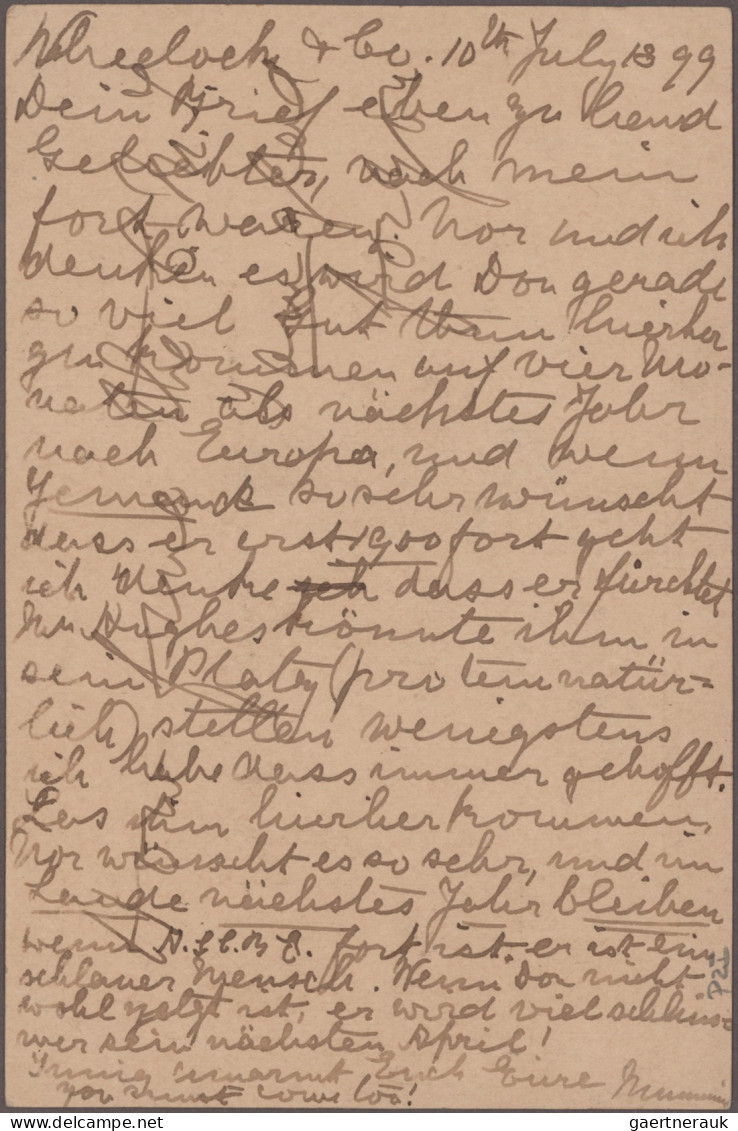 Wheelock & Co. 10th July 1899
Dein Brief eben zu hand
Geliebter, nach mein
fort waren. Nor und ich
denken es wird Don gerade
so viel Gut thun hierher
zu kommen auf vier Mo-
naten als nächstes Jahr
nach Europa, und wenn
Jemand so sehr wünscht
dass er erst 1900 fort geht
ich denke dass er fürchtet
Mr. Hughes könnte ihm in
sein Platz (pro tem natür-
lich) stellen wenigstens
ich habe dass immer gehofft.
Las ihn hierher kommen,
Nor wünscht es so sehr, und im
Lande nächstes Jahr bleiben
wenn fort ist. er ist ein
schlauer Mensch. Wenn Don nicht
wohl yetzt ist, er wird viel schlim-
mer sein nächsten April!
Innig umarmt Euch Eure
you must come too!
gaertnerauk